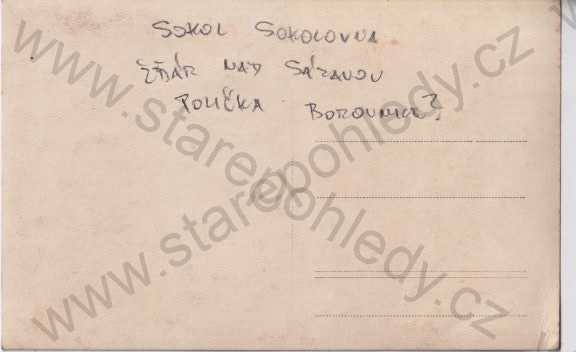 SOKOL SOKOLOVNA
ŽĎÁR NAD SÁZAVOU
POLIČKA BOROVNICE?
www.starepohledy.cz
www.starepohledy.cz